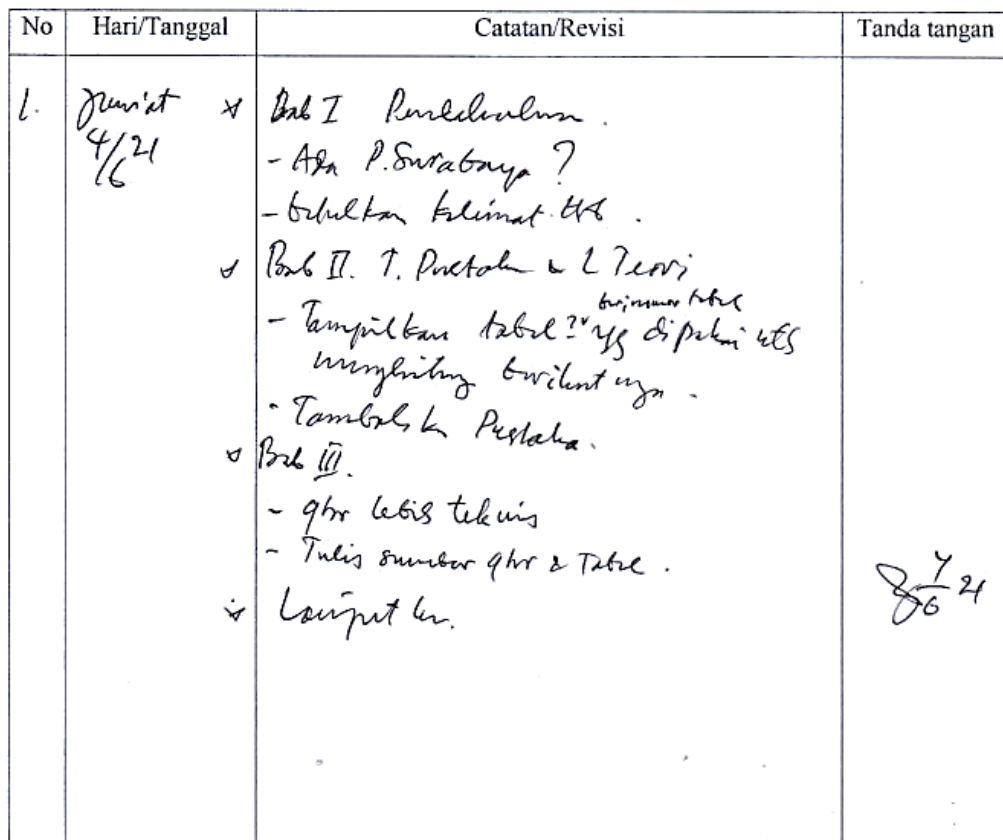 No Hari/Tanggal Catatan/Revisi Tanda tangan
1. Jum'at
4/6 21
Bab I Pendahuluan.
- Ada P. Surabaya ?
- kalimat
Bab II. T. Pustaka & L Teori
bernomor tabel
- Tampilkan tabel2 yg dipakai utk
menghitung berikutnya.
- Tambahkan Pustaka.
Bab III.
- gbr lebih teknis
- Tulis sumber gbr & Tabel.
Lanjutkan.
4/6 21